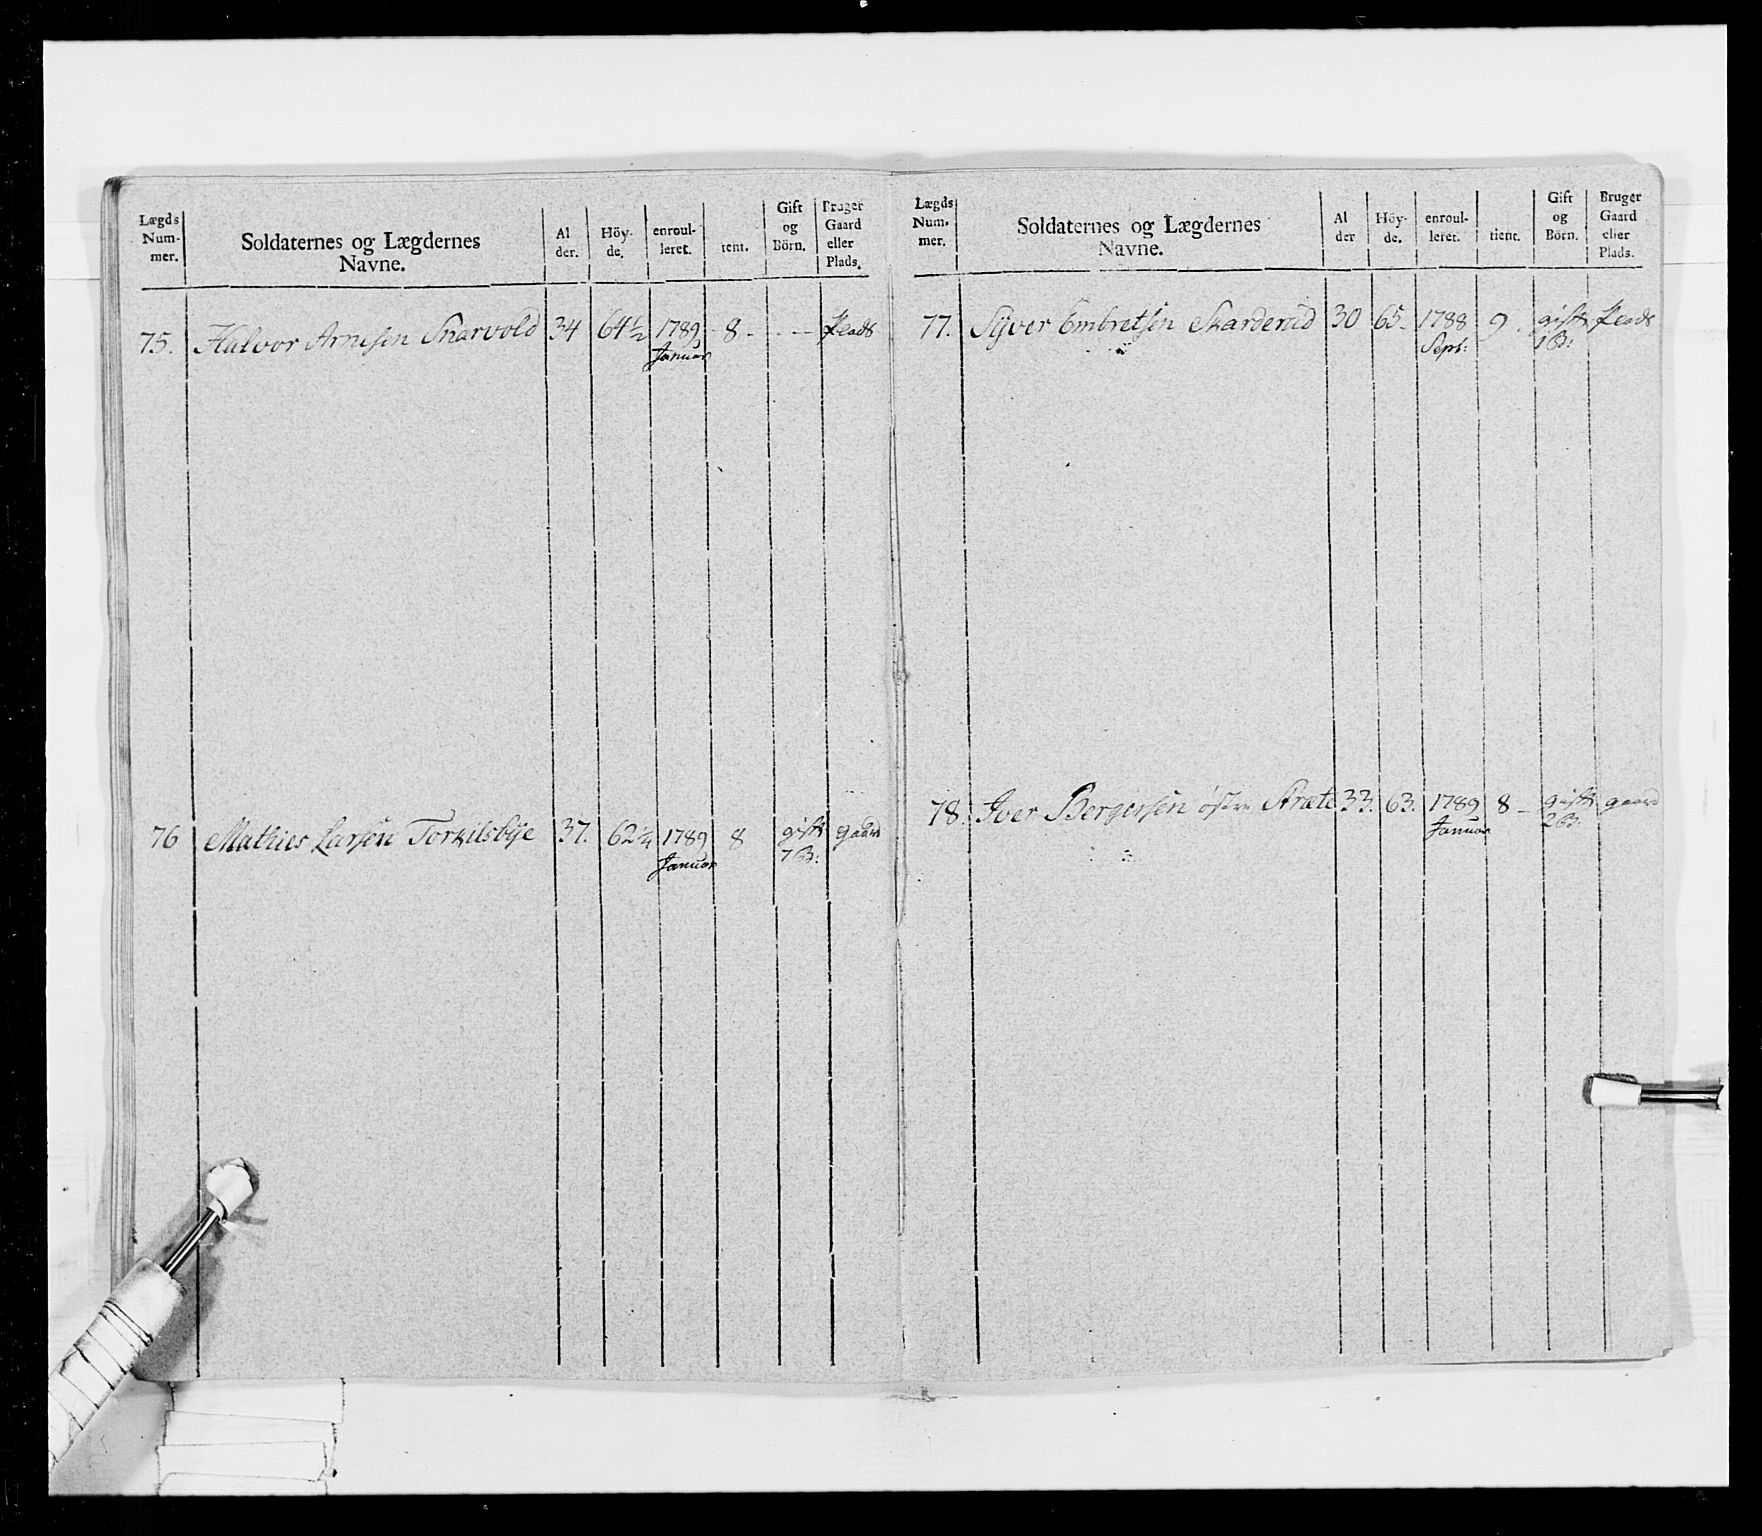 Lægds Num- mer. Soldaternes og Lægdernes Navne. Al der. Höy- de. enroul- leret. tient. Gift og Börn. Bruger Gaard eller Plads.
75. Halvor Arnesen Snarvold 34 64½ 1789 8 - - - Plads
Januar
76 Mathies Larsen Torkilsbye 37. 62¼ 1789 8 gift gaard
Januar 7 B:
Lægds Num- mer. Soldaternes og Lægdernes Navne. Al der Höy- de. enroul- leret. tient. Gift og Börn. Bruger Gaard eller Plads.
77. Syver Embretsen Skarderud 30 65- 1788 9. gift Plads
Sept: 1 B:
78. Iver Bergersen östre Stræte 33. 63. 1789 8 - gift gaard
Januar 2 B: